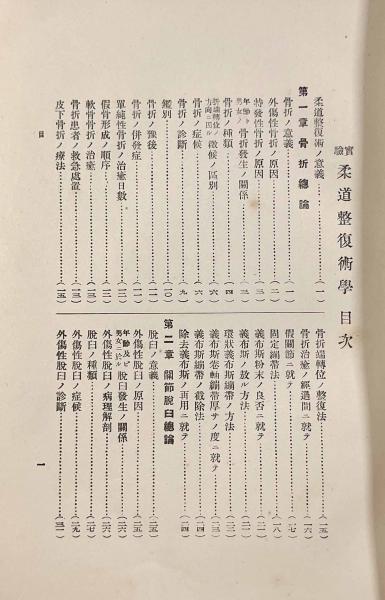 實驗 柔道整復術學 目次
柔道整復術ノ意義…………(一)
第一章 骨折總論
骨折ノ意義…………(一)
外傷性骨折ノ原因…………(二)
特發性骨折ノ原因…………(三)
年齡ト男女ノ骨折發生ノ關係…………(三)
骨折ノ種類…………(四)
折端轉位ノ方向ニ因ル徵候ノ區別…………(六)
骨折ノ症候…………(六)
骨折ノ診斷…………(九)
鑑別…………(一〇)
骨折ノ豫後…………(一一)
骨折ノ併發症…………(一一)
單純性骨折ノ治癒日數…………(一二)
假骨形成ノ順序…………(一二)
軟骨骨折ノ治癒…………(一三)
骨折患者ノ救急處置…………(一三)
皮下骨折ノ療法…………(一五)
骨折端轉位ノ整復法…………(一五)
骨折治癒ノ經過間ニ就テ…………(一六)
假關節ニ就テ…………(一七)
固定繃帶法…………(一八)
義布斯粉末ノ良否ニ就テ…………(二一)
義布斯ノ鼓ル方法…………(二一)
環狀義布斯繃帶ノ方法…………(二二)
義布斯卷軸繃帶厚サノ度ニ就テ…………(二三)
義布斯繃帶ノ截除法…………(二四)
除去義布斯ノ再用ニ就テ…………(二四)
第二章 關節脫臼總論
脫臼ノ意義…………(二五)
外傷性脫臼ノ原因…………(二五)
年齡及男女ニ於ル脫臼發生ノ關係…………(二六)
外傷性脫臼ノ病理解剖…………(二六)
脫臼ノ種類…………(二七)
外傷性脫臼ノ症候…………(二九)
外傷性脫臼ノ診斷…………(三一)
目
一